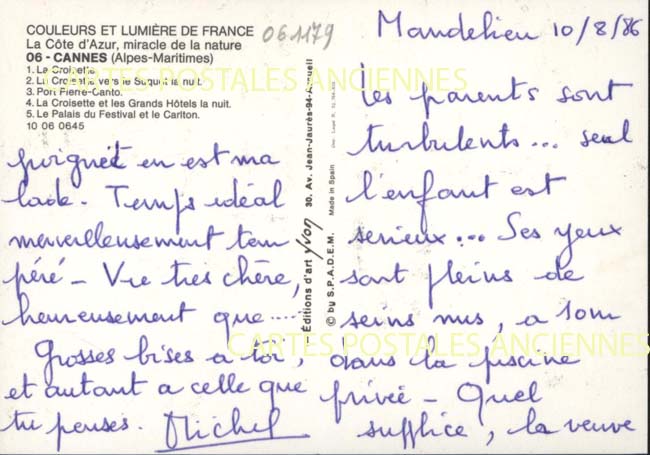 COULEURS ET LUMIÈRE DE FRANCE
La Côte d'Azur, miracle de la nature
06 - CANNES (Alpes-Maritimes)
1. La Croisette.
2. La Croisette vers le Suquet la nuit.
3. Port Pierre-Canto.
4. La Croisette et les Grands Hôtels la nuit.
5. Le Palais du Festival et le Carlton.
10 06 0645
061179
Mandelieu 10/8/86
Les parents sont
turbulents... seul
l'enfant est
serieux... Ses yeux
sont pleins de
seins nus, a 10m
dans la piscine
privée - Quel
supplice, la veuve
en est ma
lade. Temps idéal
merveilleusement tem
péré - Vie très chère,
heureusement que .....
Grosses bises a toi,
et autant a celle que
tu penses. Michel
Éditions d'art yvon 30, Av. Jean-Jaurès-94-Arcueil
© by S.P.A.D.E.M. Made in Spain
CARTES POSTALES ANCIENNES
CARTES POSTALES ANCIENNES